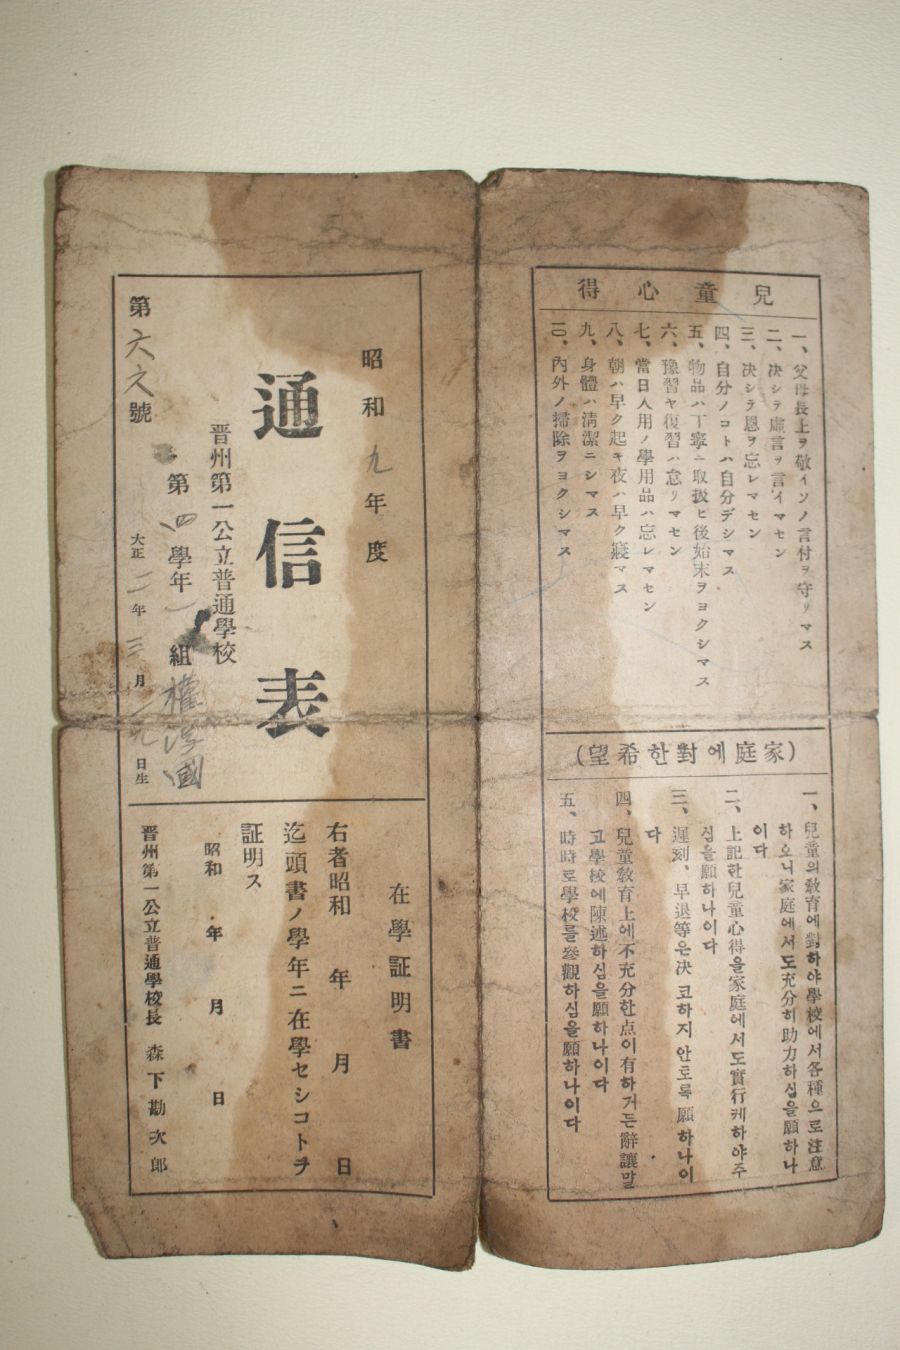 兒童心得
一、父母長上ヲ敬イソノ言付ヲ守リマス
二、决シテ虛言ヲ言イマセン
三、决シラ恩ヲ忘レマセン
四、自分ノコトハ自分デシマス
五、物品ハ丁寧ニ取扱ヒ後始末ヲヨクシマス
六、豫習ヤ復習ハ怠リマセン
七、當日入用ノ學用品ハ忘レマセン
八、朝ハ早ク起キ夜ハ早ク寢マス
九、身體ハ清潔ニシマス
一〇、內外ノ掃除ヲヨクシマス
(家庭에對한希望)
一、兒童의敎育에對하야學校에서各種으로注意
하오니家庭에서도充分히助力하심을願하나
이다
二、上記한兒童心得을家庭에서도實行케하야주
심을願하나이다
三、遲刻、早退等은决코하지안토록願하나이
다
四、兒童敎育上에不充分한点이有하거든辭讓말
고學校에陳述하심을願하나이다
五、時時로學校를參觀하심을願하나이다
昭和九年度
通信表
晋州第一公立普通學校
第四學年 一組 權淳國
大正二年三月一九日生
第六六號
在學証明書
右者昭和 年 月 日
迄頭書ノ學年ニ在學セシコトヲ
証明ス
昭和 年 月 日
晋州第一公立普通學校長 森下勘次郎